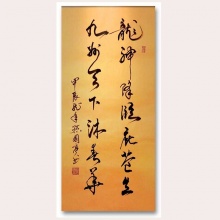 龍神降臨庇蒼生
九州天下沐春華
甲辰龍年